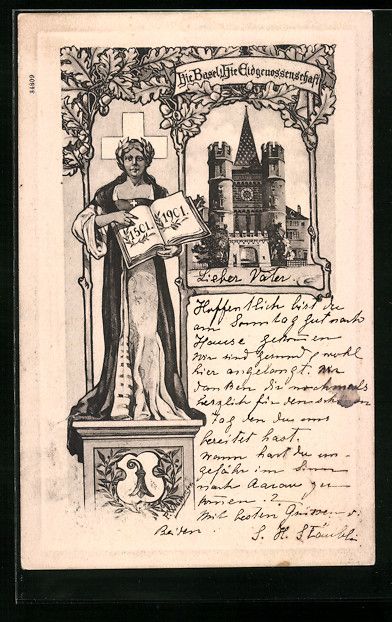 34809
Hie Basel! Hie Eidgenossenschaft
15C1.
19C1.
Lieber Vater.
Hoffentlich bist du
am Sonntag gut nach
Hause gekommen
Wir sind gesund & wohl
hier angelangt. Wir
danken dir nochmals
herzlich für den schönen
Tag den du uns
bereitet hast.
Wann hast du un-
gefähr im Sinn
nach Aarau zu
kommen?
Mit besten Grüssen v.
Beiden